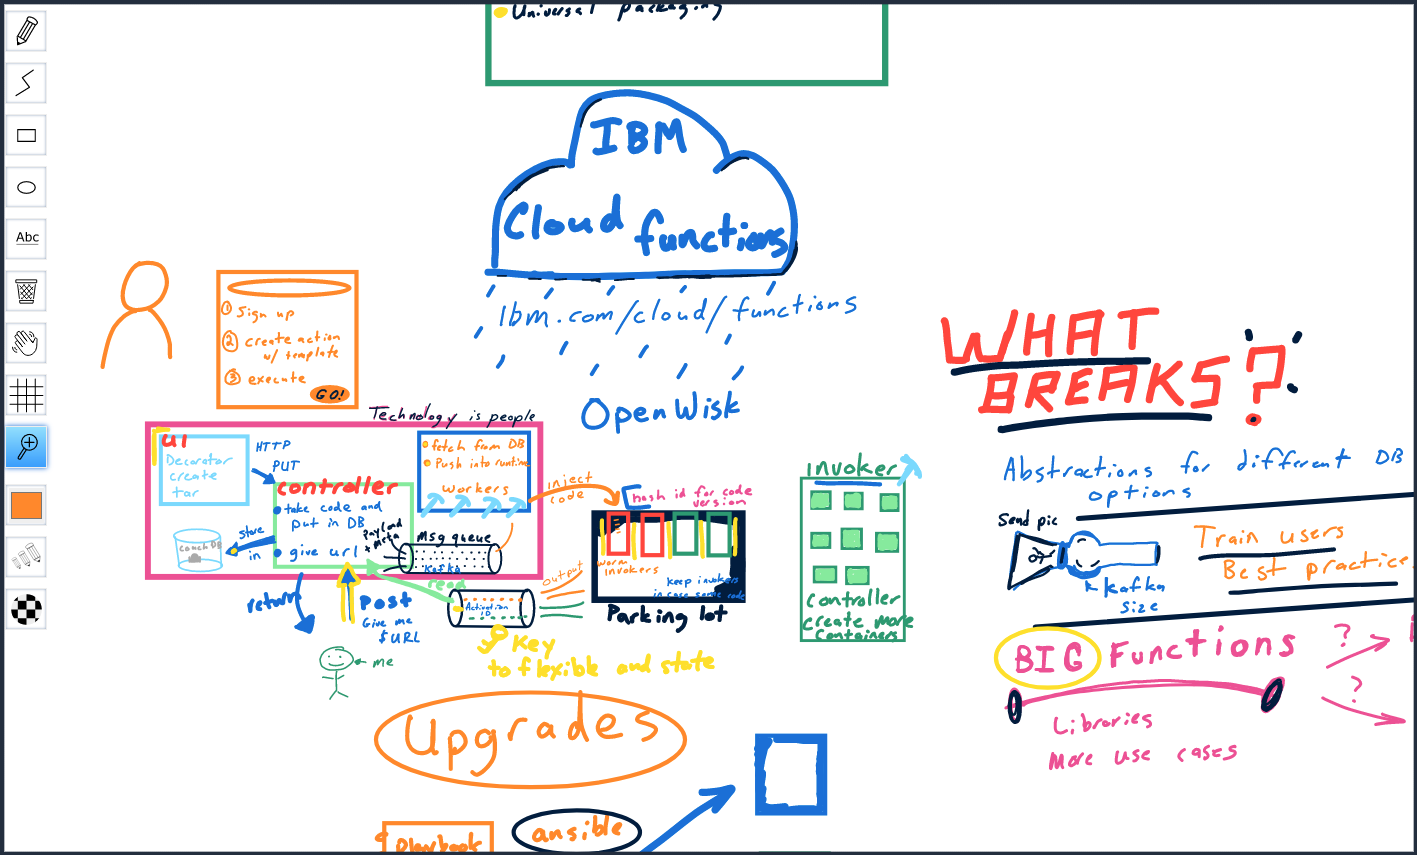 Universal packaging
Abc
IBM
Cloud functions
Ibm.com/cloud/functions
OpenWisk
① Sign up
② create action
w/ template
③ execute
GO!
Technology is people
ui
Decorator
create
tar
HTTP
PUT
controller
take code and
put in DB
give url
store
in
CouchDB
fetch from DB
Push into runtime
workers
Payload
+ meta
Msg queue
Kafka
inject
code
hash id for code
version
warm
invokers
keep invokers
in case same code
Parking lot
output
read
Activation
ID
return
Post
Give me
$URL
me
Key
to flexible and state
invoker
controller
create more
containers
Upgrades
Playbook
ansible
WHAT
BREAKS?
Abstractions for different DB
options
Send pic
Kafka
size
Train users
Best practice
BIG Functions
?
?
Libraries
More use cases